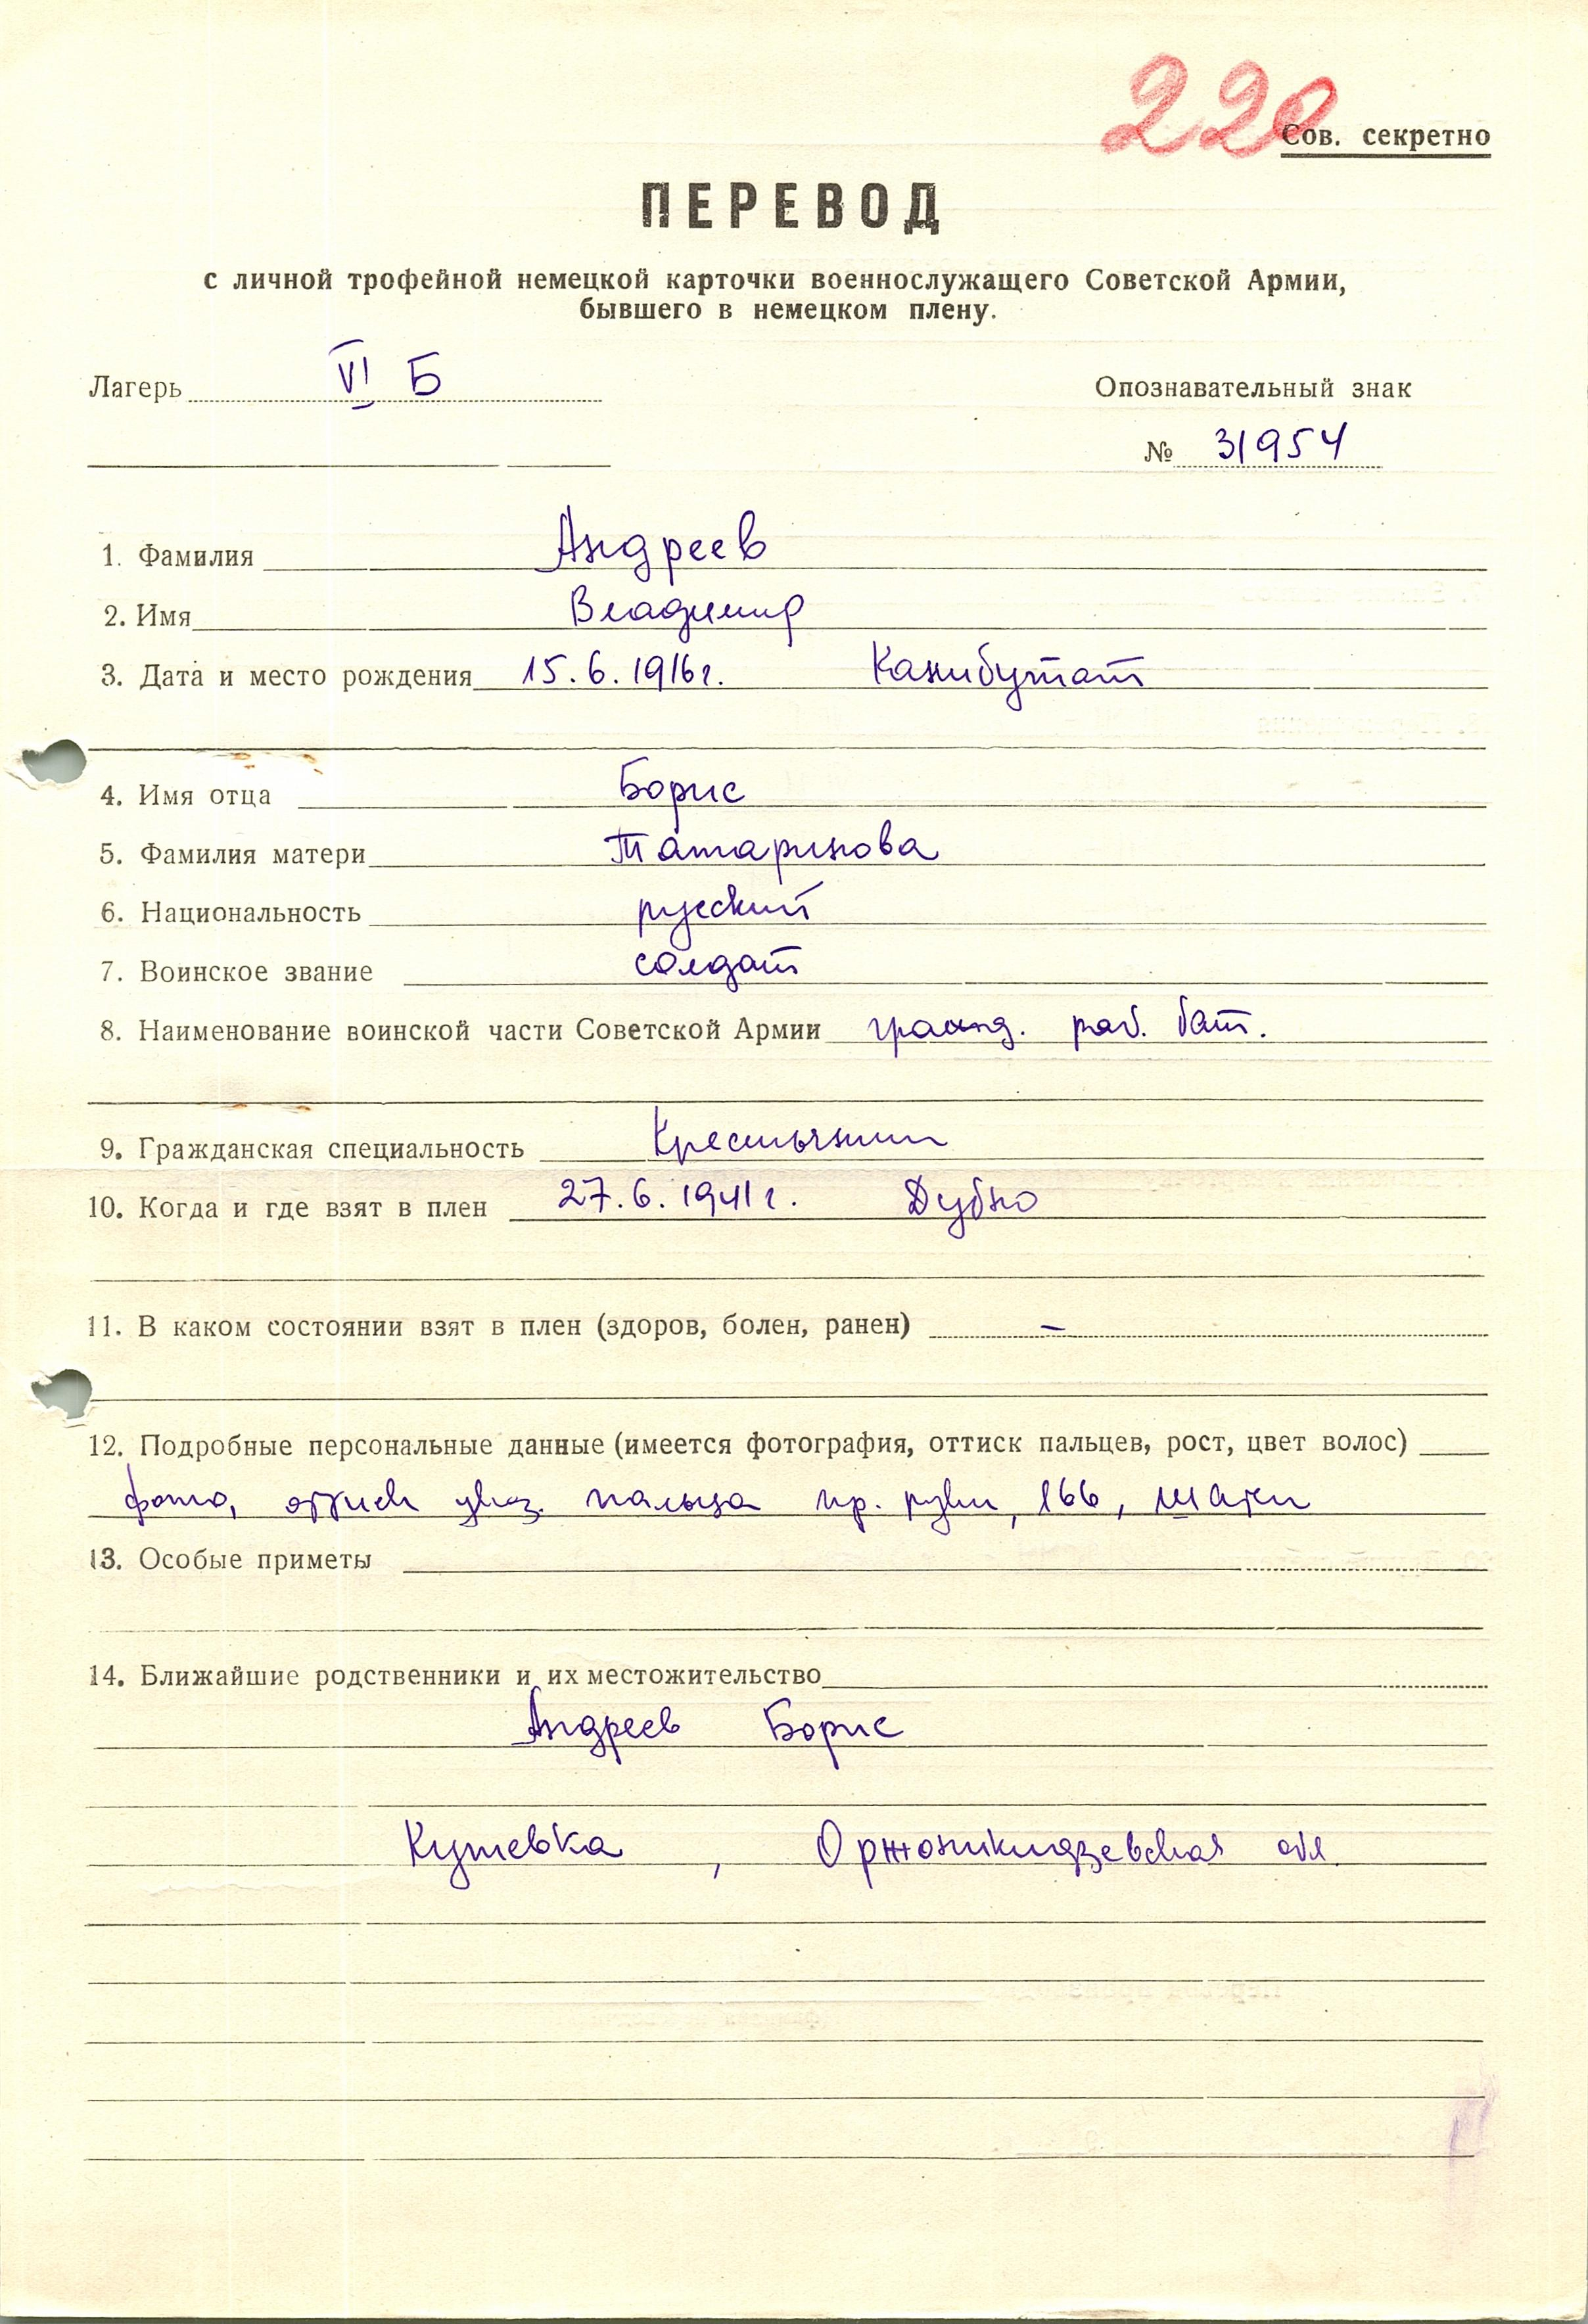 220
Сов. секретно
ПЕРЕВОД
с личной трофейной немецкой карточки военнослужащего Советской Армии,
бывшего в немецком плену.
Лагерь VI Б Опознавательный знак
№ 31954
1. Фамилия Андреев
2. Имя Владимир
3. Дата и место рождения 15.6.1916г. Канибутат
4. Имя отца Борис
5. Фамилия матери Татаринова
6. Национальность русский
7. Воинское звание солдат
8. Наименование воинской части Советской Армии гражд. раб. бат.
9. Гражданская специальность Крестьянин
10. Когда и где взят в плен 27.6.1941г. Дубно
11. В каком состоянии взят в плен (здоров, болен, ранен) –
12. Подробные персональные данные (имеется фотография, оттиск пальцев, рост, цвет волос)
фото, оттиск указ. пальца пр. руки, 166, шатен
13. Особые приметы
14. Ближайшие родственники и их местожительство
Андреев Борис
Кушевка, Орджоникидзевская обл.